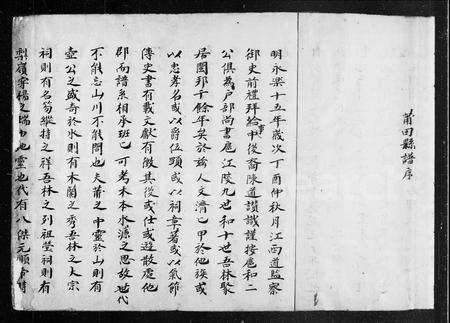 莆田縣譜序
明永樂十五年歲次丁酉仲秋月江西道監察
御史前禮拜給事中後裔陳道讚謹接扈和二
公俱為戶部尚書扈江陵九世和十世吾林聚
居閩邦千餘年矣於茲人文濟已甲於他族或
以忠孝名或以爵位顕或以祠章著或以氣節
傳史書有載文獻有徵其後或仕或遊散處他
郡尚譜系相承班已可考木本水源之思故世代
不能忘山川不能間也夫莆之中靈於山則有
壺公之盛奇於水則有木蘭之秀吾林之大宗
祠則有名笏縱持之祥吾林之列祖塋祠則有
梨嶺寧楊之瑞由地靈也代有八傑元順帝時